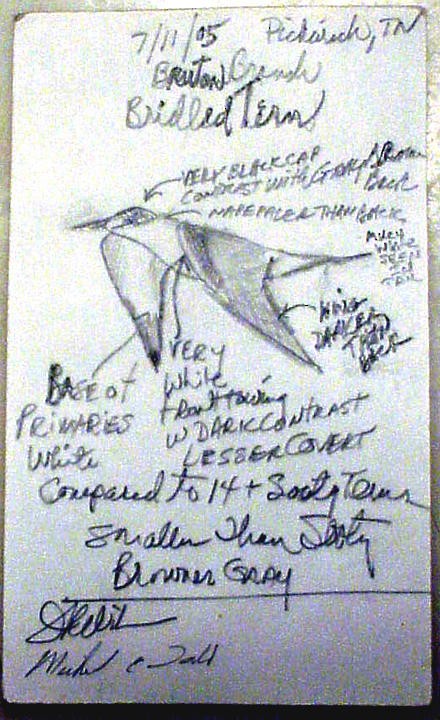 7/11/05 Pickwick, TN
Bridled Tern
VERY BLACK CAP
CONTRAST WITH GRAY/BROWN
BACK
NAPE PALER THAN BACK
MUCH
White
Tail
WING
DARKER
THAN
BACK
BASE OF
PRIMARIES
White
VERY
White
front to wing
W DARK CONTRAST
LESSER COVERT
Compared to 14+ Sooty Terns
Smaller Than Sooty
Browner GRAY